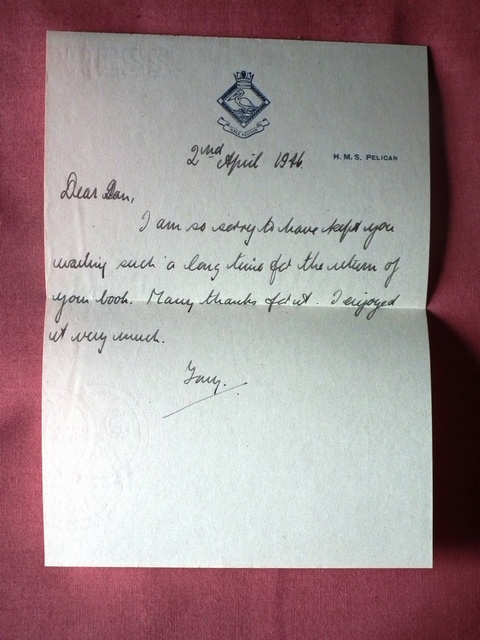 2nd April 1946.
H. M. S. PELICAN
Dear Dan,
I am so sorry to have kept you
waiting such a long time for the return of
your book. Many thanks for it. I enjoyed
it very much.